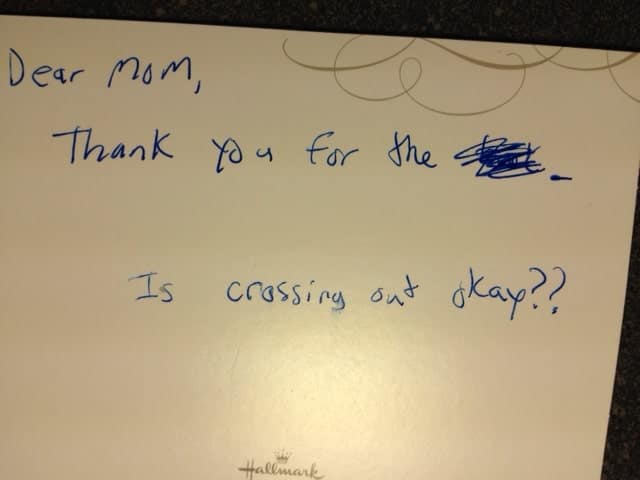 Dear Mom,
Thank you for the .
Is crossing out okay??
Hallmark